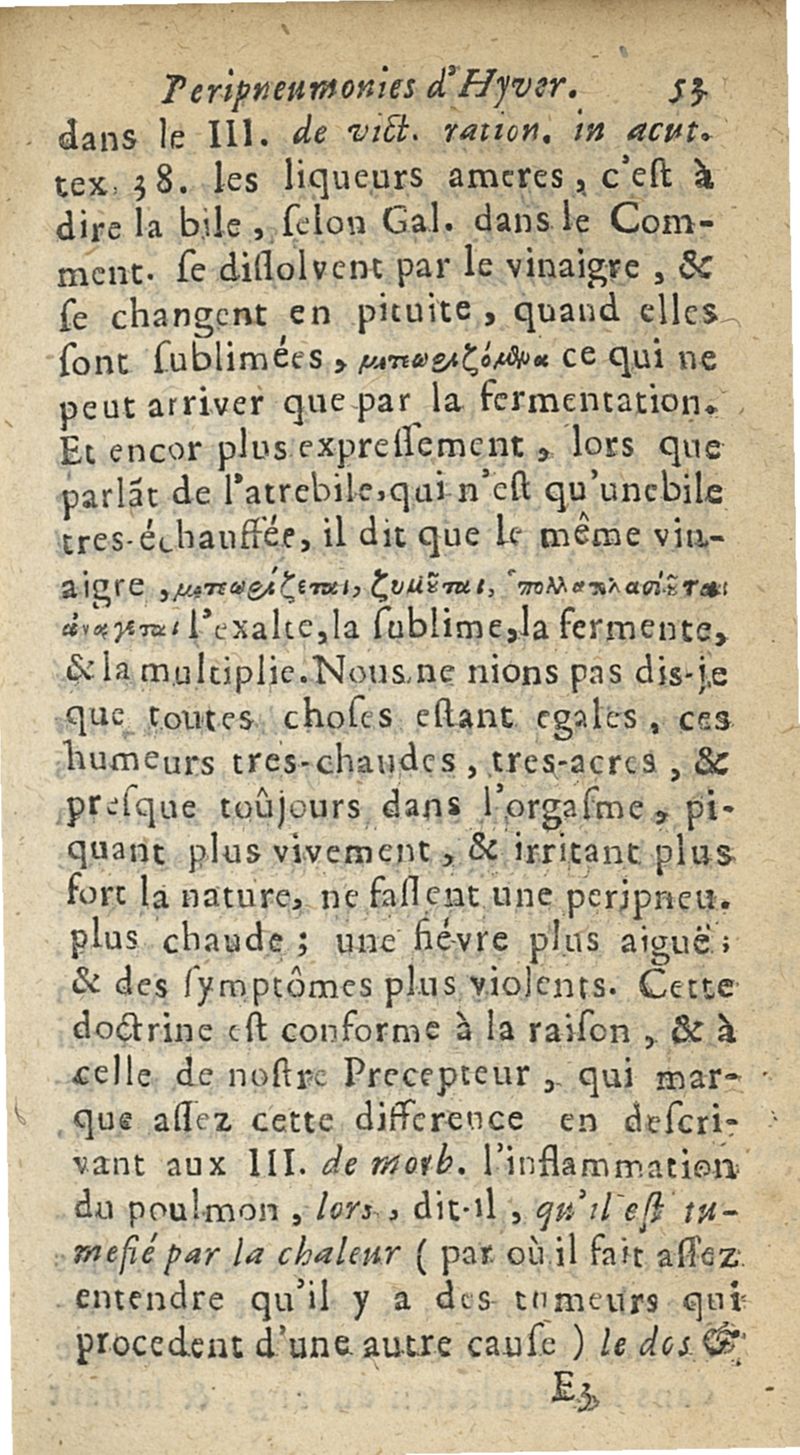 Peripneumonies d'Hyver. 53
dans le III. de vict. ration. in acut.
tex. 38. les liqueurs ameres, c'eſt à
dire la bile, ſelon Gal. dans le Com-
ment. ſe diſſolvent par le vinaigre, &
ſe changent en pituite, quand elles
ſont ſublimées, ce qui ne
peut arriver que par la fermentation.
Et encor plus expreſſement, lors que
parlãt de l'atrebile, qui n'eſt qu'unebile
tres-échauffée, il dit que le même vin-
aigre, ζυμοῦται,
l'exalte, la ſublime, la fermente,
& la multiplie. Nous ne nions pas dis-je
que toutes choſes eſtant egales, ces
humeurs tres-chaudes, tres-acres, &
preſque toûjours dans l'orgaſme, pi-
quant plus vivement, & irritant plus
fort la nature, ne faſſent une peripneu.
plus chaude; une fiévre plus aiguë;
& des ſymptômes plus violents. Cette
doctrine eſt conforme à la raiſon, & à
celle de noſtre Precepteur, qui mar-
que aſſez cette difference en deſcri-
vant aux III. de morb. l'inflammation
du poulmon, lors, dit-il, qu'il eſt tu-
mefié par la chaleur (par où il fait aſſez
entendre qu'il y a des tumeurs qui
procedent d'une autre cauſe) le dos &
E3